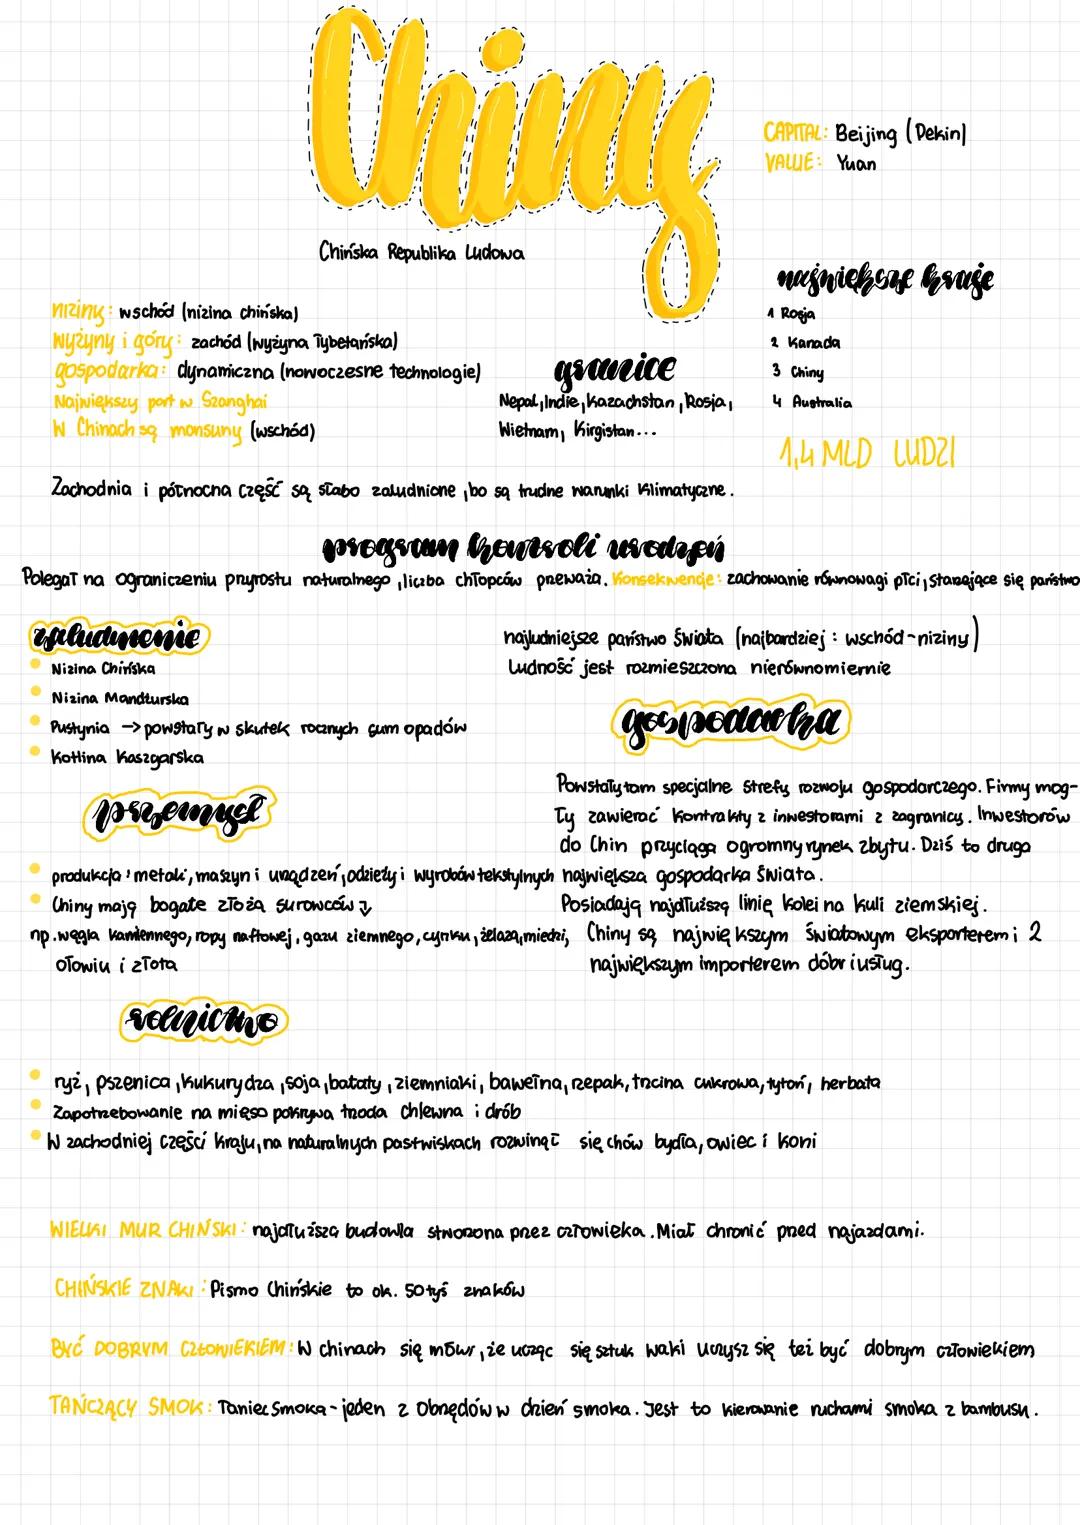 Chiny
CAPITAL: Beijing (Pekin)
VALUE: Yuan
Chińska Republika Ludowa
największe kraje
1 Rosja
2 Kanada
3 Chiny
4 Australia
1,4 MLD LUDZI
niziny: wschód (nizina chińska)
Wyżyny i góry: zachód (wyżyna Tybetańska)
gospodarka: dynamiczna (nowoczesne technologie)
Największy port w Szanghai
W Chinach są monsuny (wschód)
granice
Nepal, Indie, Kazachstan, Rosja,
Wietnam, Kirgistan...
Zachodnia i północna część są słabo zaludnione, bo są trudne warunki klimatyczne.
program kontroli urodzeń
Polegał na ograniczeniu przyrostu naturalnego, liczba chłopców przeważa. Konsekwencje: zachowanie równowagi płci, starzejące się państwo
zaludnienie
Nizina Chińska
Nizina Mandżurska
Pustynia → powstały w skutek rocznych sum opadów
Kotlina Kaszgarska
najludniejsze państwo świata (najbardziej: wschód-niziny)
Ludność jest rozmieszczona nierównomiernie
gospodarka
Powstały tam specjalne strefy rozwoju gospodarczego. Firmy mog-
ły zawierać kontrakty z inwestorami z zagranicy. Inwestorów
do Chin przyciąga ogromny rynek zbytu. Dziś to druga
największa gospodarka świata.
Posiadają najdłuższą linię kolei na kuli ziemskiej.
Chiny są największym światowym eksporterem i 2
największym importerem dóbr i usług.
przemysł
produkcja: metali, maszyn i urządzeń, odzieży i wyrobów tekstylnych
Chiny mają bogate złoża surowców ↓
np. węgla kamiennego, ropy naftowej, gazu ziemnego, cynku, żelaza, miedzi,
ołowiu i złota
rolnictwo
ryż, pszenica, kukurydza, soja, bataty, ziemniaki, bawełna, rzepak, trzcina cukrowa, tytoń, herbata
Zapotrzebowanie na mięso pokrywa trzoda chlewna i drób
W zachodniej części kraju, na naturalnych pastwiskach rozwinął się chów bydła, owiec i koni
WIELKI MUR CHIŃSKI: najdłuższa budowla stworzona przez człowieka. Miał chronić przed najazdami.
CHIŃSKIE ZNAKI: Pismo Chińskie to ok. 50 tyś znaków
BYĆ DOBRYM CZŁOWIEKIEM: W chinach się mówi, że ucząc się sztuk walki uczysz się też być dobrym człowiekiem
TAŃCZĄCY SMOK: Taniec Smoka - jeden z obrzędów w dzień smoka. Jest to kierowanie ruchami smoka z bambusu.